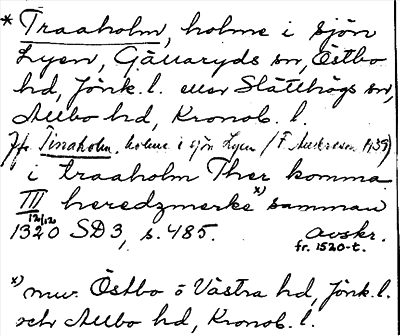 * Traaholm, holme i sjön
Lyen, Gällaryds sn, Östbo
hd, Jönk. l. eller Slätthögs sn,
Allbo hd, Kronob. l.
Jfr Tiraholm, holme i sjön Lyen (F. Andersson 1939)
i traaholm Ther komma
III heredzmerke x) samman
12/12
1320 SD 3, s. 485. avskr.
fr. 1520-t.
x) nuv. Östbo o Västra hd, Jönk. l.
och Allbo hd, Kronob. l.